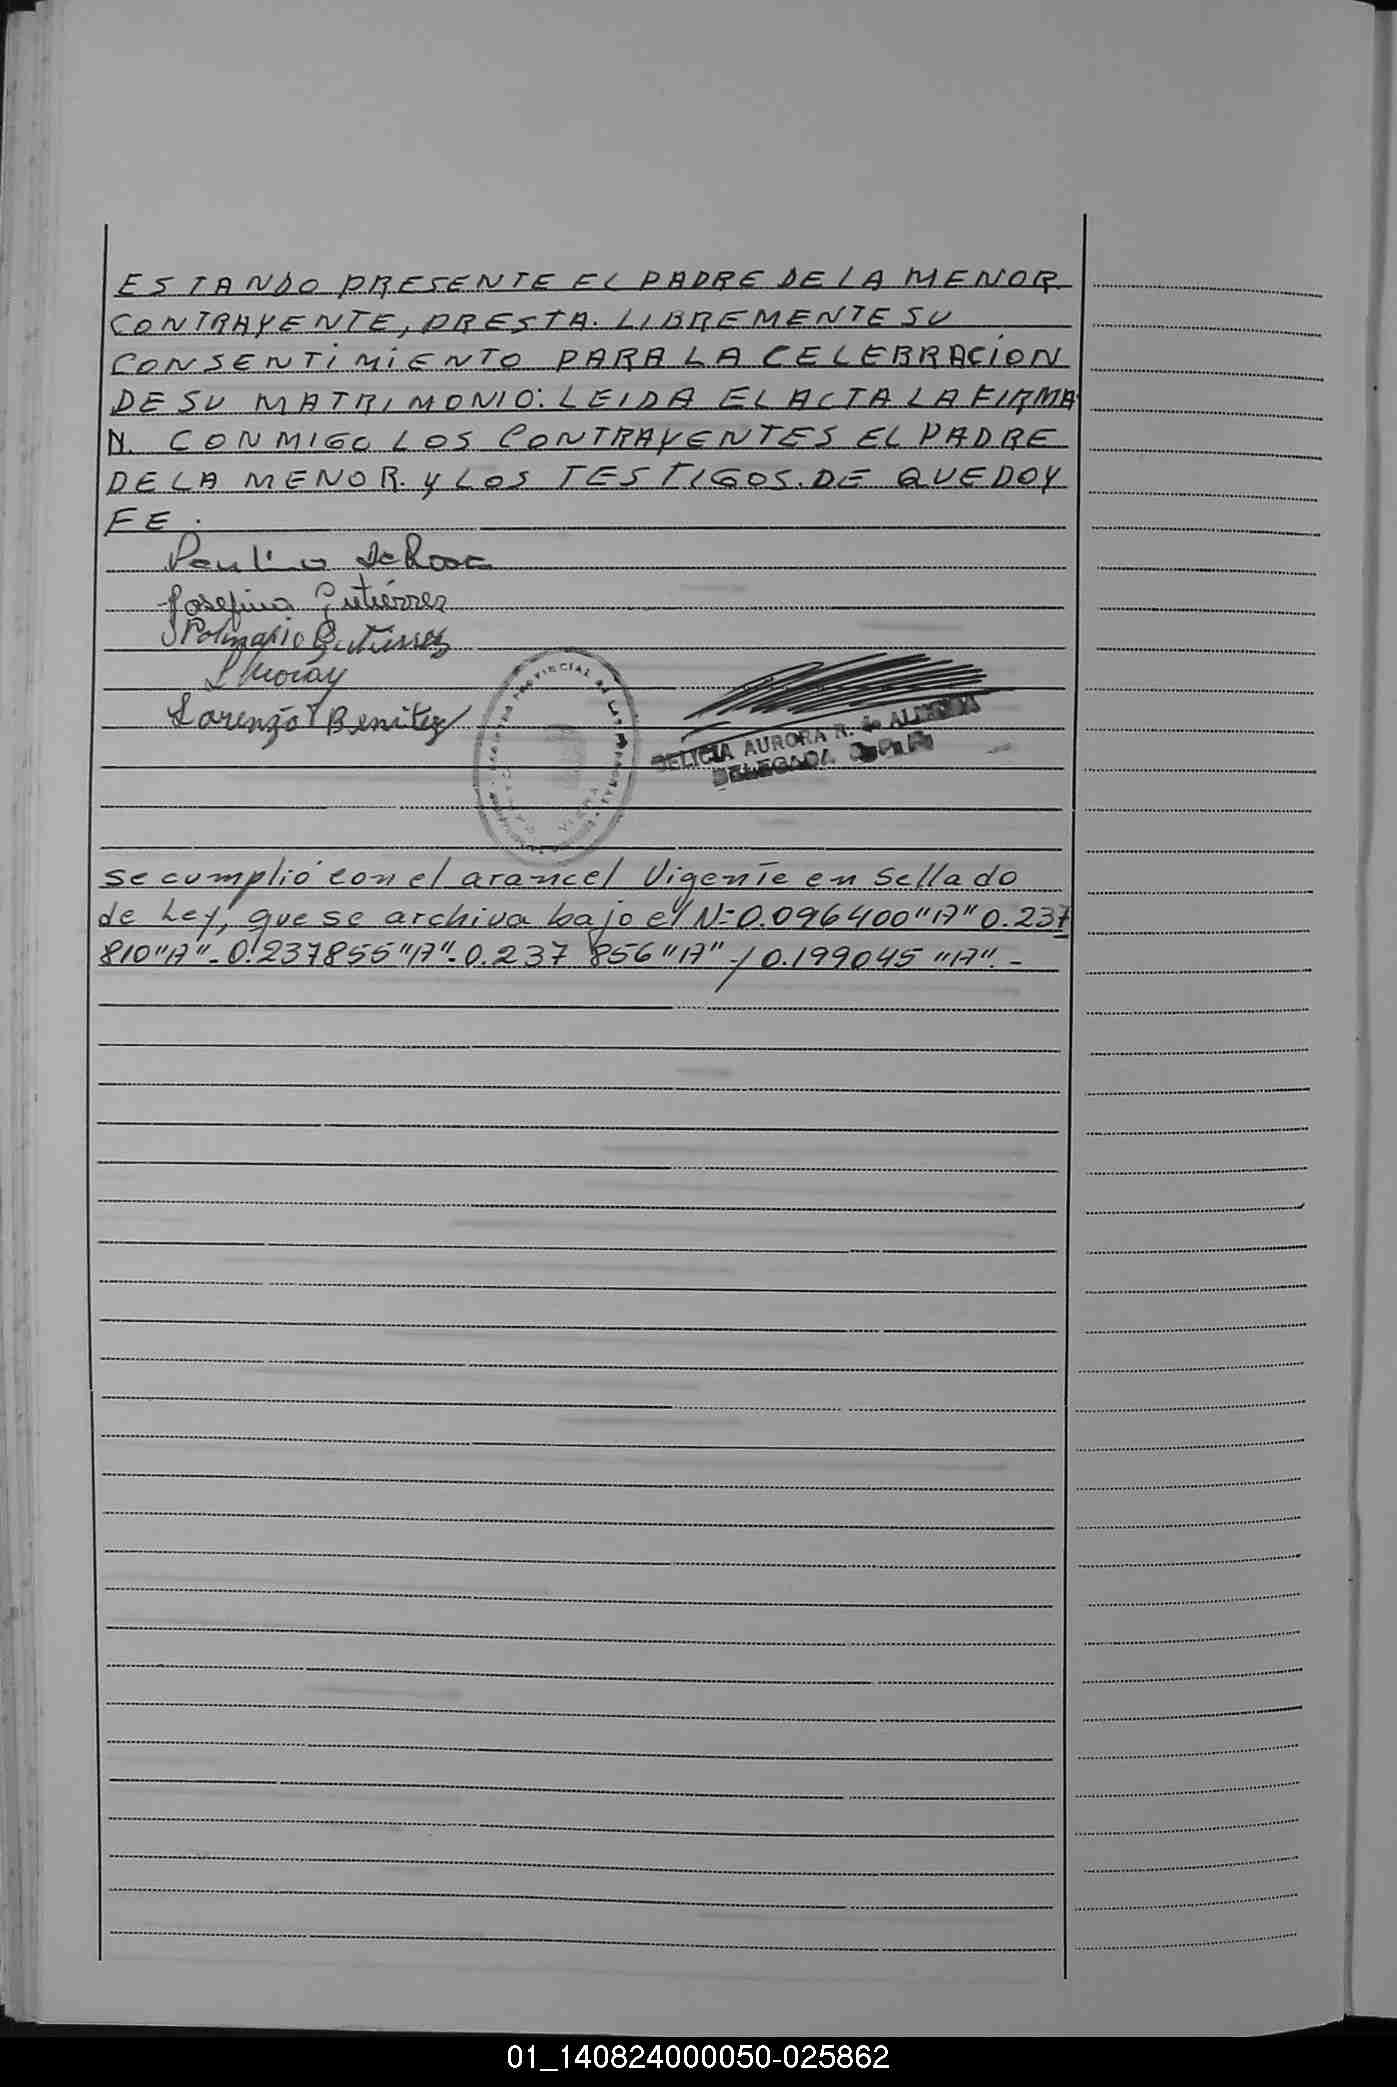 ESTANDO PRESENTE EL PADRE DE LA MENOR
CONTRAYENTE, PRESTA. LIBREMENTE SU
CONSENTIMIENTO PARA LA CELEBRACION
DE SU MATRIMONIO: LEIDA EL ACTA LA FIRMA
N. CONMIGO LOS CONTRAYENTES EL PADRE
DE LA MENOR. Y LOS TESTIGOS. DE QUE DOY
FE.
Paulino De Rosa
Josefina Gutiérrez
Gutierrez
Lorenzo Benitez
PROVINCIAL DE LAS
DELICIA AURORA R. de
DELEGADA
se cumplió con el arancel Vigente en Sellado
de Ley, que se archiva bajo el N=0.096400 "A" 0.237
810 "A" - 0.237855 "A" - 0.237 856 "A" -/ 0.199045 "A". -
01_140824000050-025862